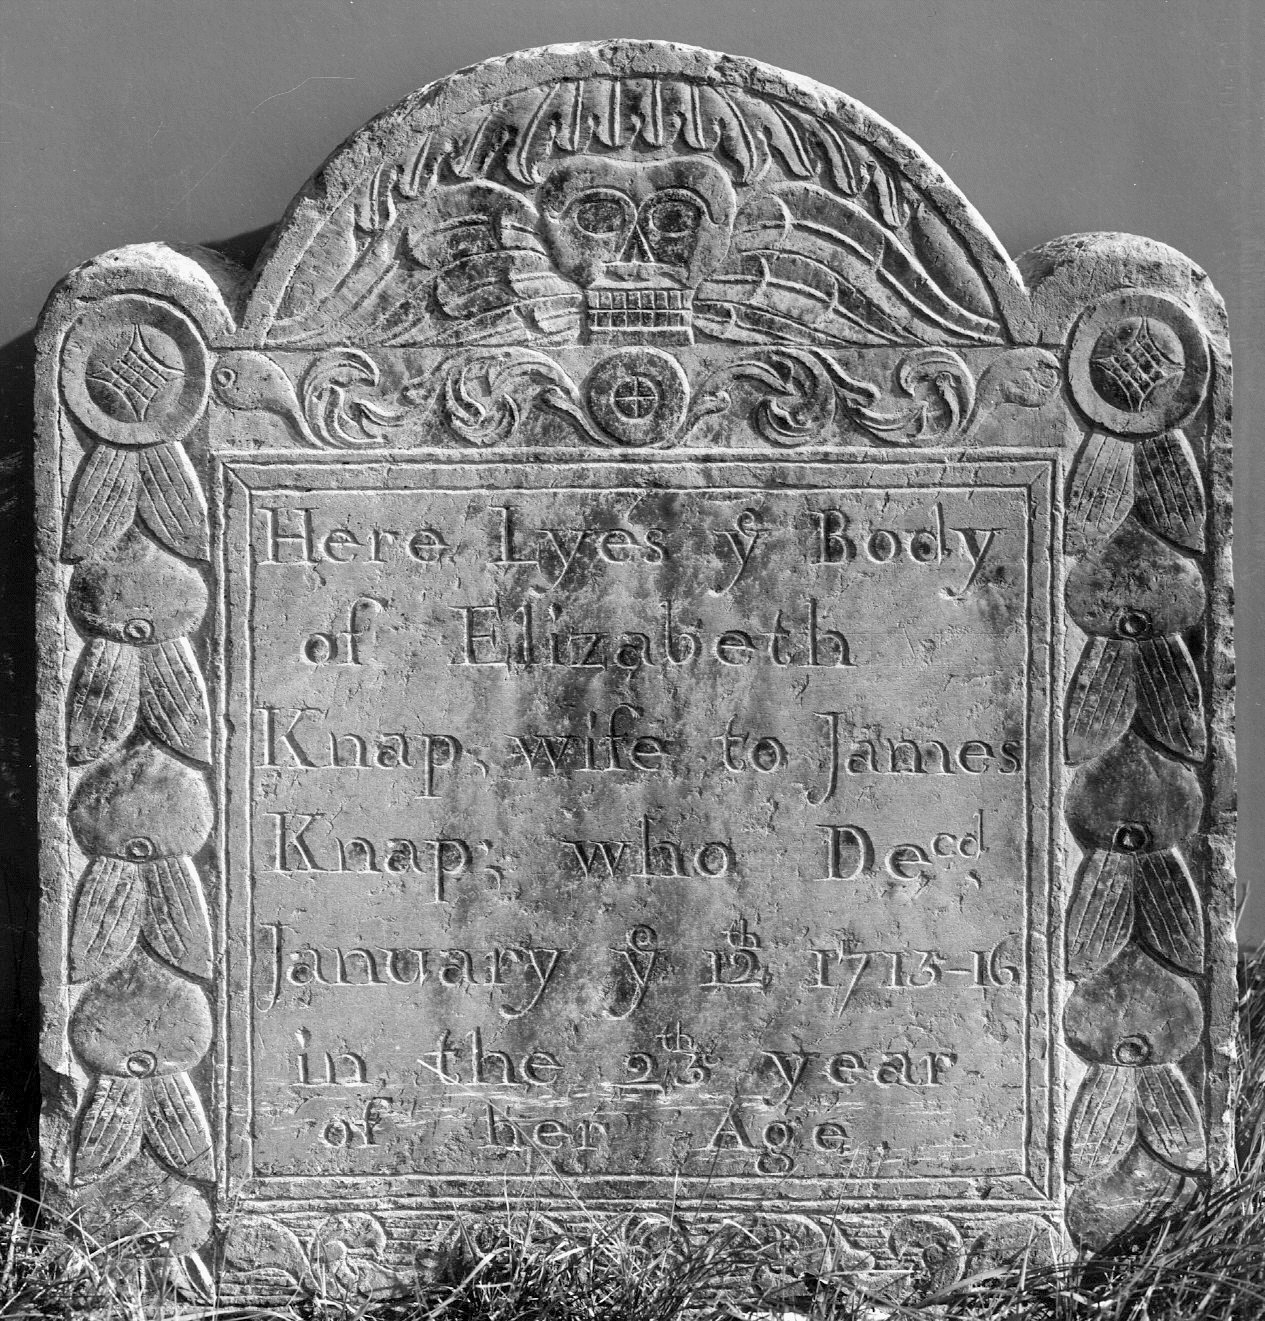 Here Lyes yᵉ Body
of Elizabeth
Knap, wife to James
Knap; who Decᵈ,
January yᵉ 12ᵗʰ 1713-16
in the 23ᵗʰ year
of her Age.